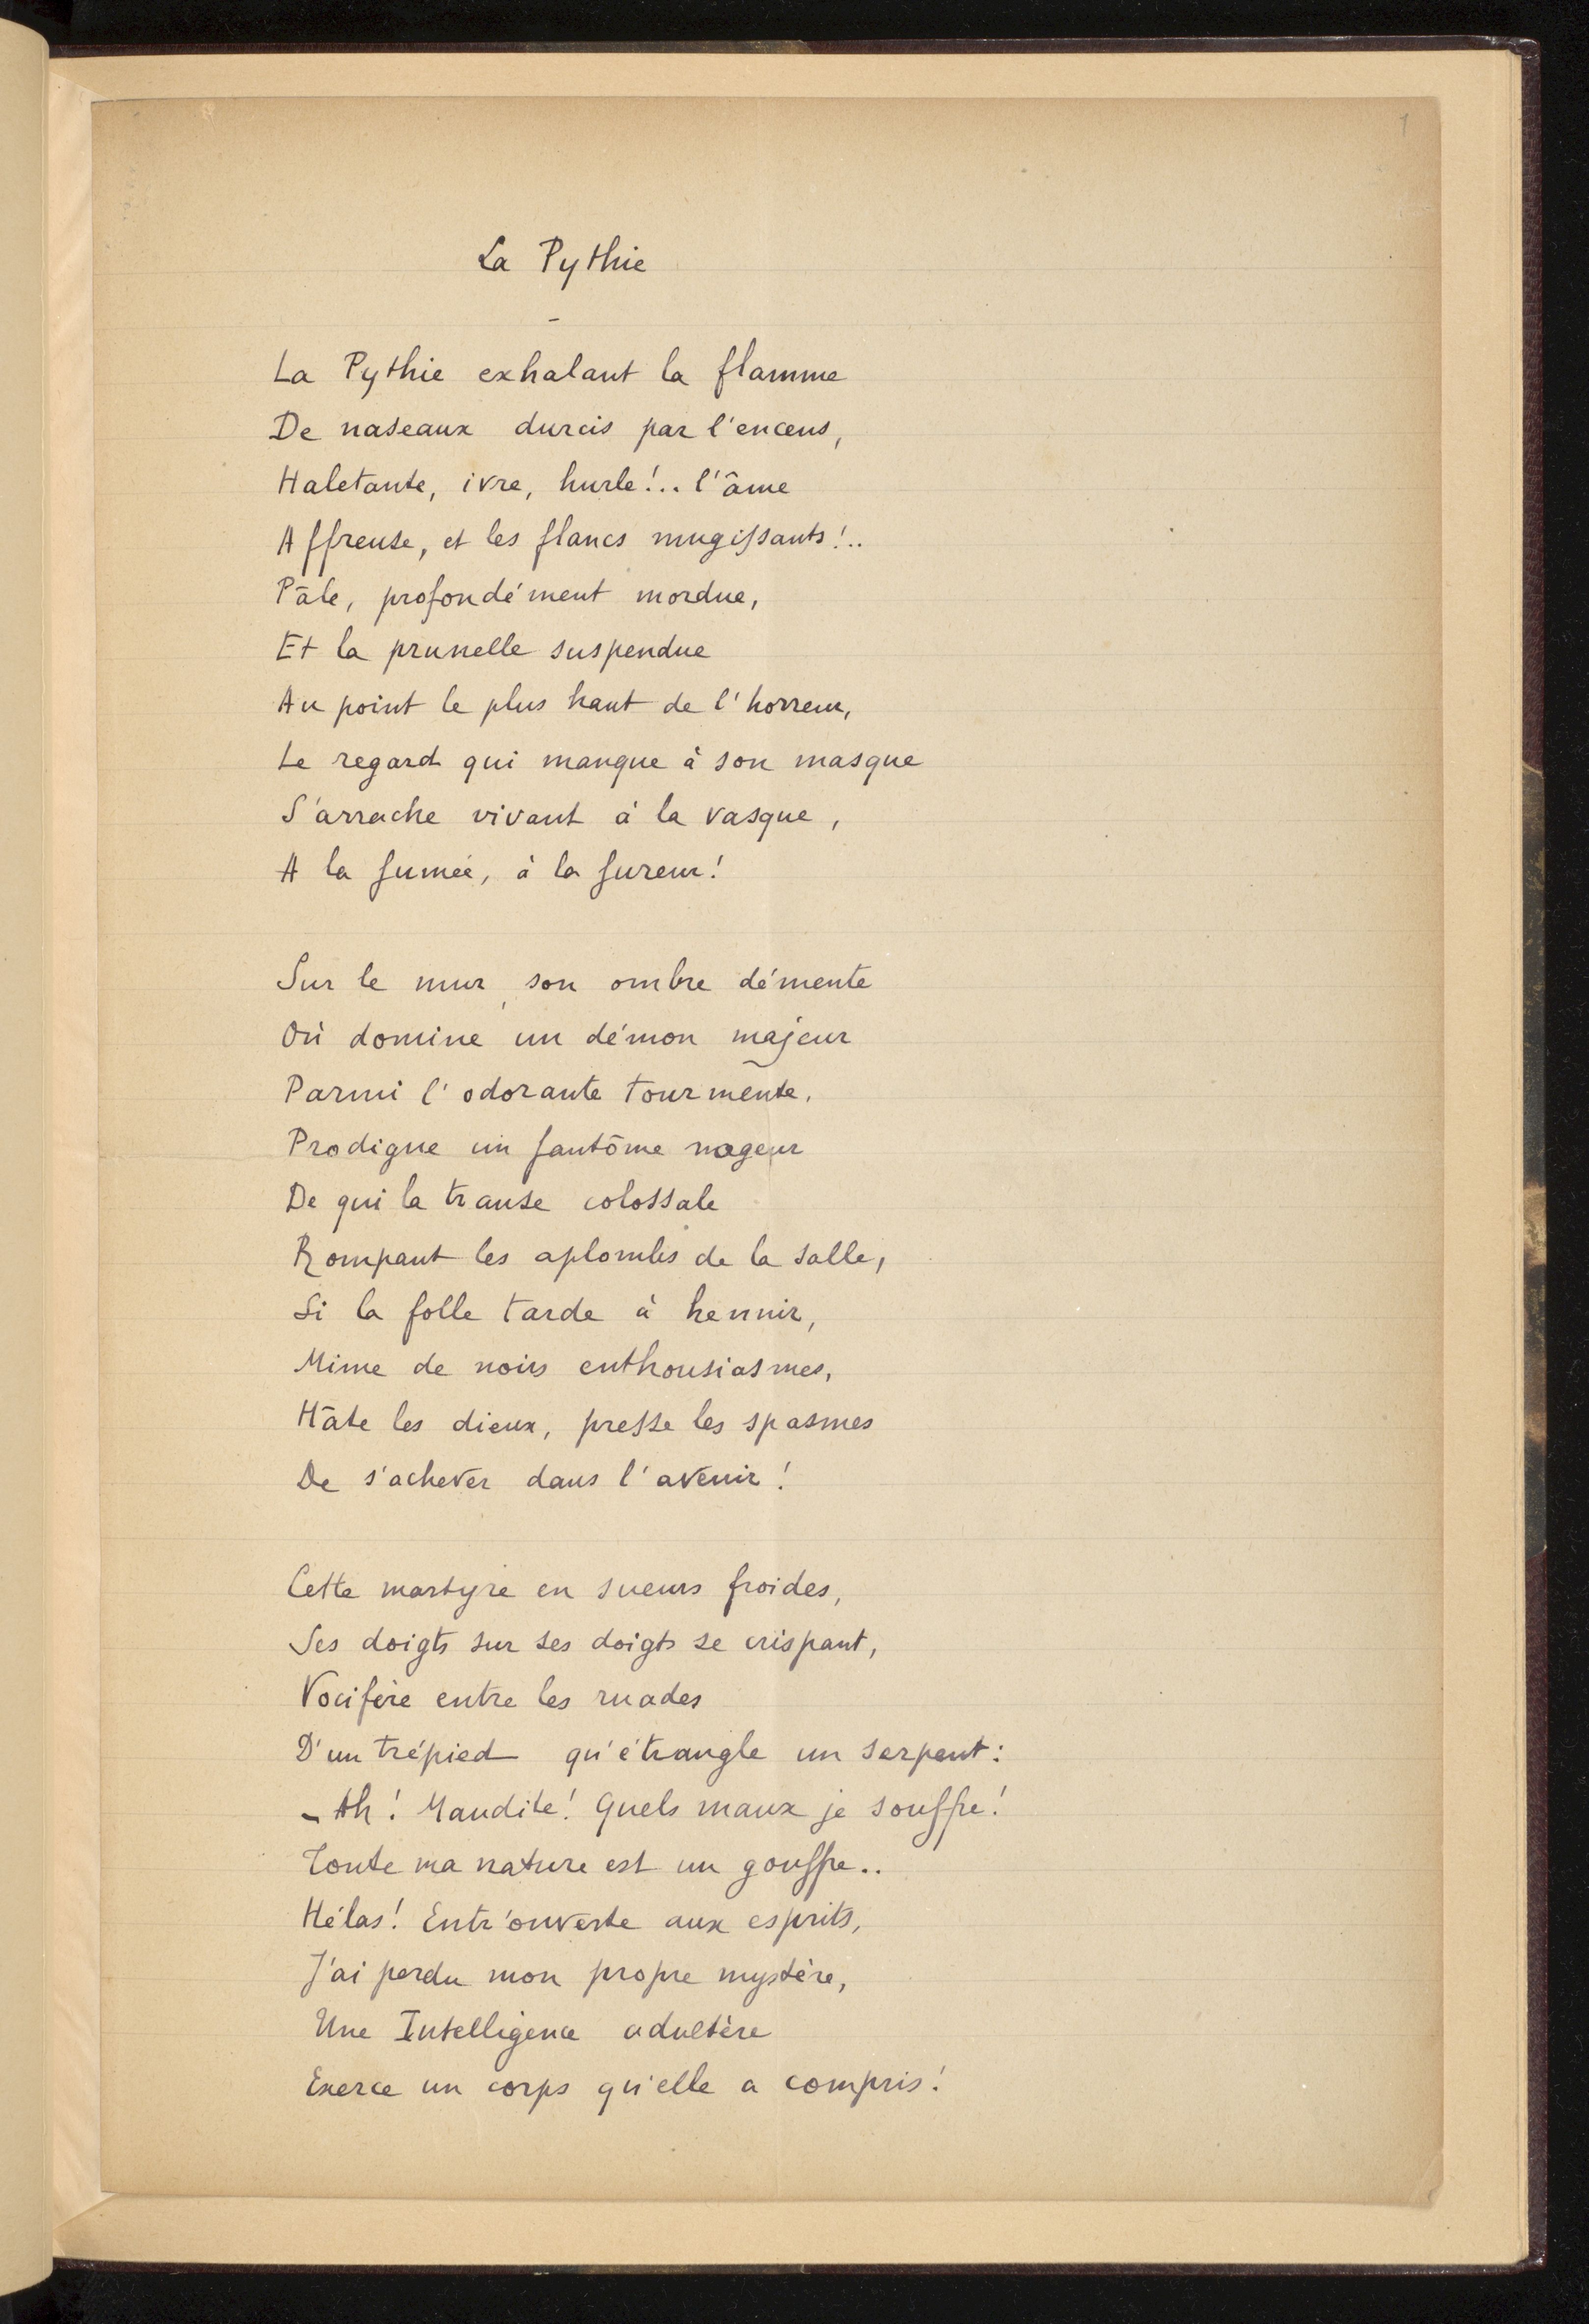 1
La Pythie
-
La Pythie exhalant la flamme
De naseaux durcis par l'encens,
Haletante, ivre, hurle!.. l'âme
Affreuse, et les flancs mugissants!..
Pâle, profondément mordue,
Et la prunelle suspendue
Au point le plus haut de l'horreur,
Le regard qui manque à son masque
S'arrache vivant à la vasque,
A la fumée, à la fureur!
Sur le mur, son ombre démente
Où domine un démon majeur
Parmi l'odorante tourmente,
Prodigue un fantôme nageur
De qui la transe colossale
Rompant les aplombs de la salle,
Si la folle tarde à hennir,
Mime de noirs enthousiasmes,
Hâte les dieux, presse les spasmes
De s'achever dans l'avenir!
Cette martyre en sueurs froides,
Ses doigts sur ses doigts se crispant,
Vocifère entre les ruades
D'un trépied qu'étrangle un serpent:
- Ah! Maudite! Quels maux je souffre!
Toute ma nature est un gouffre..
Hélas! Entr'ouverte aux esprits,
J'ai perdu mon propre mystère,
Une Intelligence adultère
Exerce un corps qu'elle a compris!